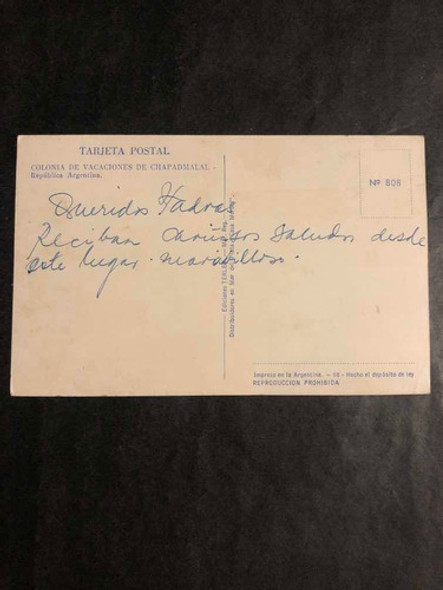 TARJETA POSTAL
COLONIA DE VACACIONES DE CHAPADMALAL -
República Argentina.
Nº 808
Queridos
Reciban cariñosos saludos desde
este lugar maravilloso.
Impreso en la Argentina. - Hecho el depósito de ley
REPRODUCCION PROHIBIDA